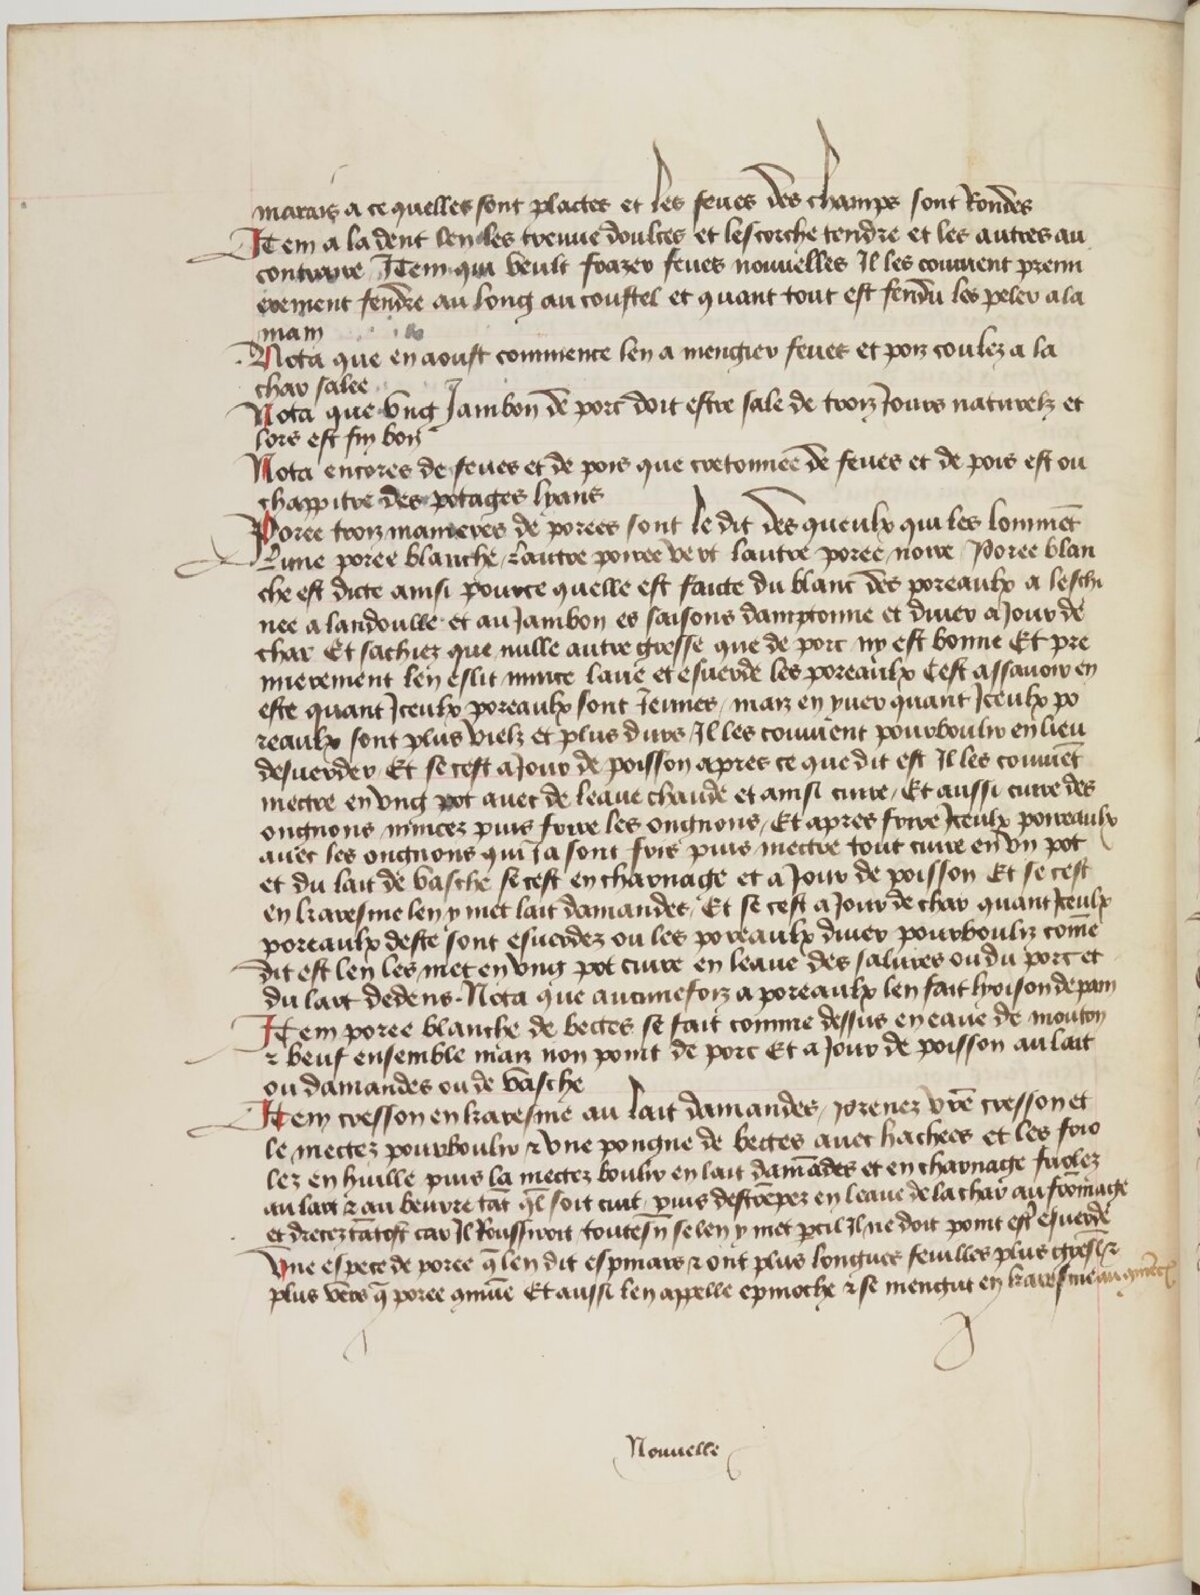 marais a ce quelles sont plactes et les feves des champs sont Rondes
Item a la dent len les treuue doulces et lescorche tendre et les autres au
contraire Item qui veult frazer feves nouvelles Il les convient premi
erement fendre au long au coustel et quant tout est fendu les peler a la
main
Nota que en aoust commence len a mengier feves et pois coulez a la
char salee
Nota que ung Jambon de porc doit estre sale de trois Jours naturelz et
lors est fin bon
Nota encores de feves et de pois que cretonnee de feves et de pois est ou
chappitre des potages lyans
Poree trois manieres de porees sont le dit des queulx qui les nomment
Lune poree blanche lautre poree vert lautre poree noire Poree blan
che est dicte ainsi pource quelle est faicte du blanc des poreaulx a leschi
nee a landoulle et au Jambon es saisons damptonne et diver a Jour de
char Et sachiez que nulle autre gresse que de porc ny est bonne Et pre
mierement len eslit mince lave et esverde les poreaulx Cest assavoir en
este quant Iceulx poreaulx sont Jeunes mais en yver quant Iceulx po
reaulx sont plus vielz et plus durs Il les convient pourboulir en lieu
desverder Et se cest a Jour de poisson apres ce que dit est Il les convient
mectre en ung pot avec de leaue chaude et ainsi cuire Et aussi cuire des
ongnons mincez puis frire les ongnons Et apres frire Iceulx porreaulx
avec les ongnons qui Ja sont fris puis mectre tout cuire en un pot
et du lait de vasche se cest en charnage et a Jour de poisson Et se cest
en karesme len y met lait damandes Et se cest a Jour de char quant Iceulx
poreaulx deste sont esverdez ou les poreaulx diver pourboulis come
dit est len les met en ung pot cuire en leaue des salures ou du porc et
du lart dedens Nota que aucunesfois a poreaulx len fait lyoison de pain
Item poree blanche de bectes se fait comme dessus en eaue de mouton
& beuf ensemble mais non point de porc Et a Jour de poisson au lait
ou damandes ou de vasche
Item cresson en karesme au lait damandes Prenez vre cresson et
le mectez pourboulir & une pongne de bectes avec hachees et les frio
lez en huille puis la mectez boulir en lait damandes et en charnage friolez
au lart & au beurre tat ql soit cuit puis destrepez en leaue de la char au fromage
et drecez tatost car Il Roussiroit toutesn se len y met pcil Il ne doit point est esverde
Une espece de poree q len dit espinars & ont plus longues feuilles plus gresles &
plus vers q poree comue Et aussi len appelle epinoche & se mengut en karesme au
Nouvelle